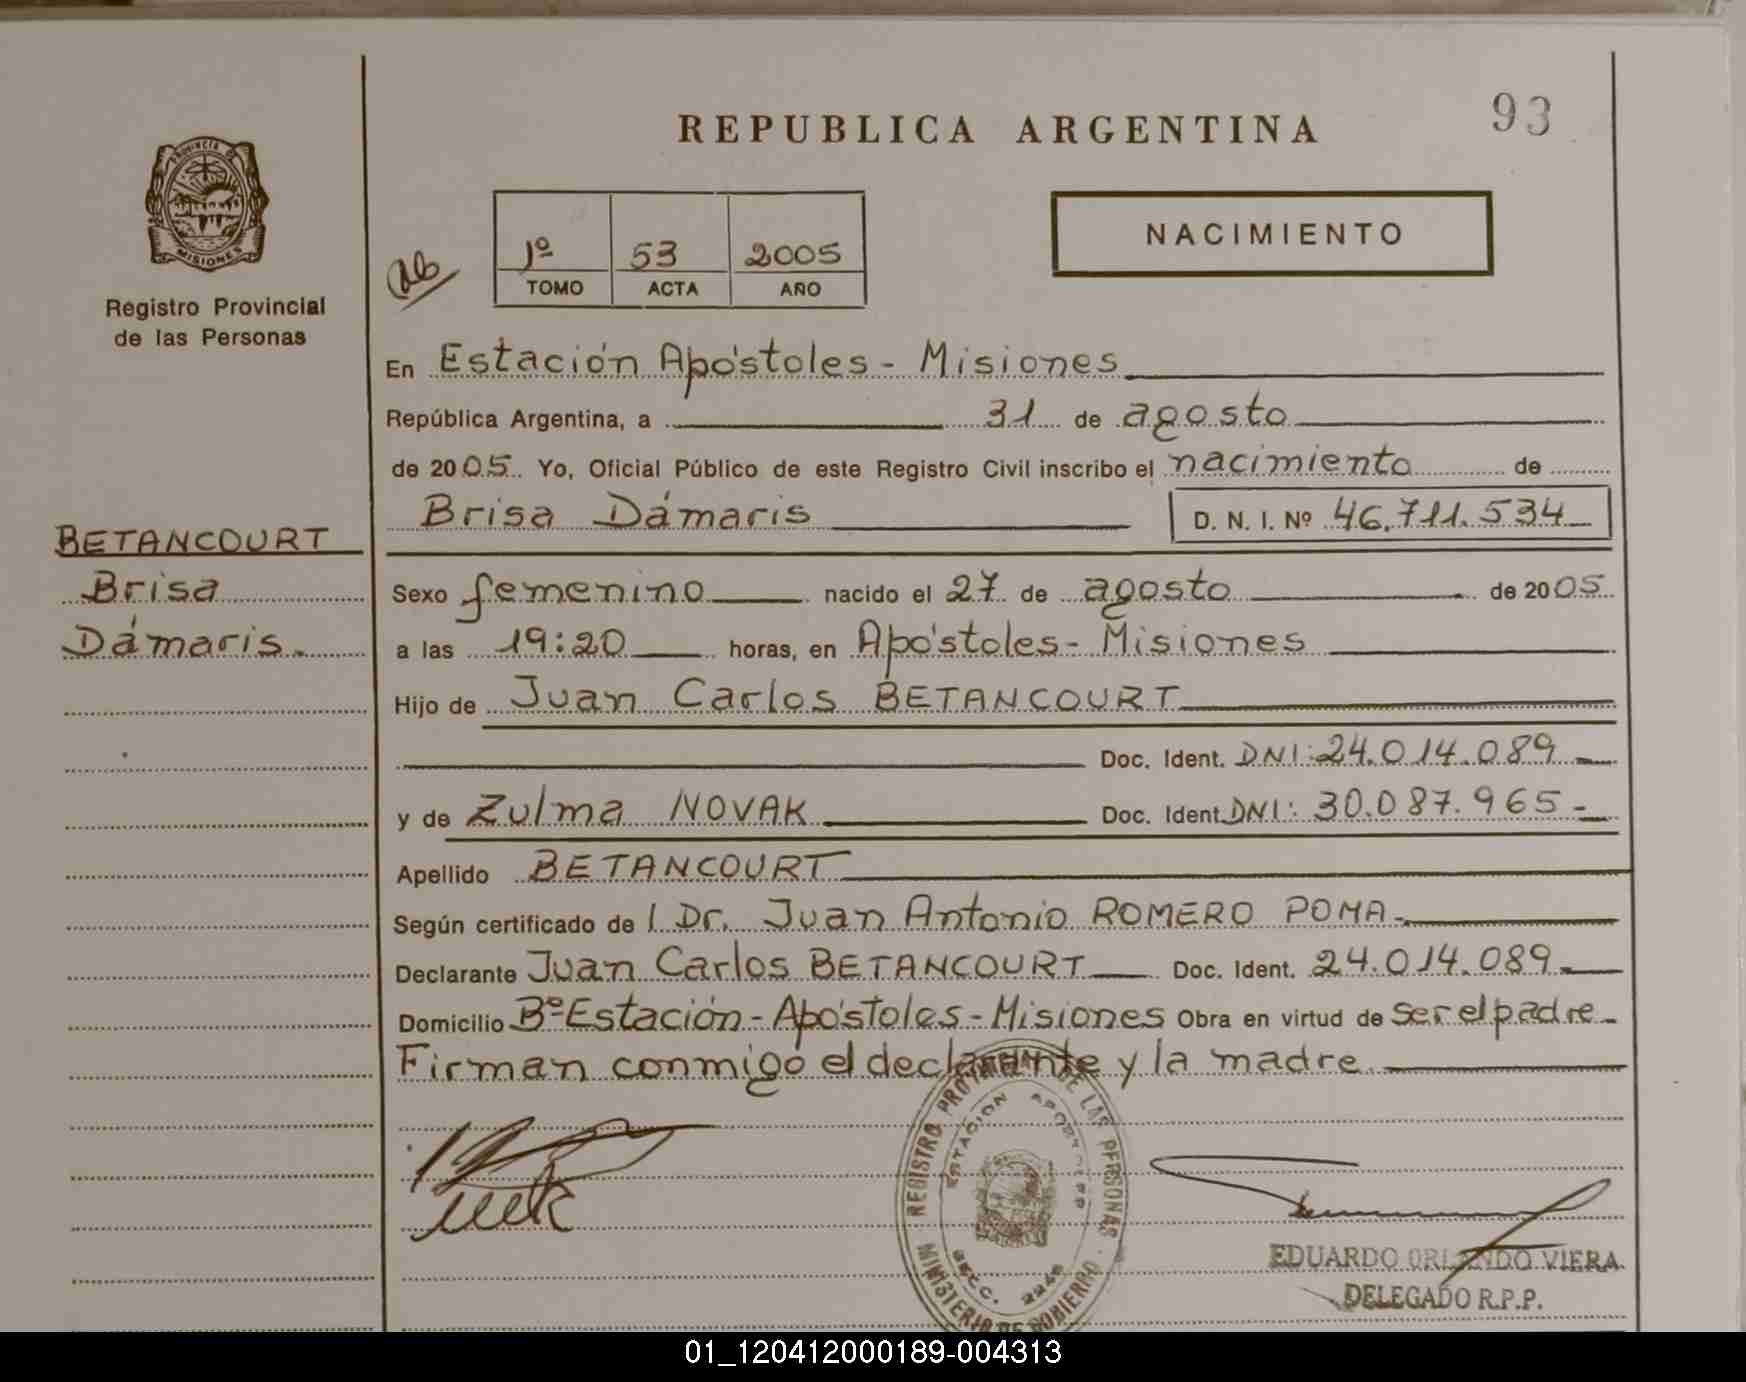 REPUBLICA ARGENTINA
93
PROVINCIA DE
MISIONES
Registro Provincial
de las Personas
1º 53 2005
TOMO ACTA AÑO
NACIMIENTO
En Estación Apóstoles - Misiones
República Argentina, a 31 de agosto
de 2005. Yo, Oficial Público de este Registro Civil inscribo el nacimiento de
Brisa Dámaris D. N. I. Nº 46.711.534
BETANCOURT
Brisa
Dámaris.
Sexo femenino nacido el 27 de agosto de 2005
a las 19:20 horas, en Apóstoles - Misiones
Hijo de Juan Carlos BETANCOURT
Doc. Ident. DNI: 24.014.089
y de Zulma NOVAK Doc. Ident. DNI: 30.087.965-
Apellido BETANCOURT
Según certificado de l Dr. Juan Antonio ROMERO POMA
Declarante Juan Carlos BETANCOURT Doc. Ident. 24.014.089
Domicilio Bº Estación - Apóstoles - Misiones Obra en virtud de ser el padre
Firman conmigo el declarante y la madre
REGISTRO PROVINCIAL DE LAS PERSONAS
ESTACION APOSTOLES
MINISTERIO DE GOBIERNO
EDUARDO ORLANDO VIERA
DELEGADO R.P.P.
01_120412000189-004313